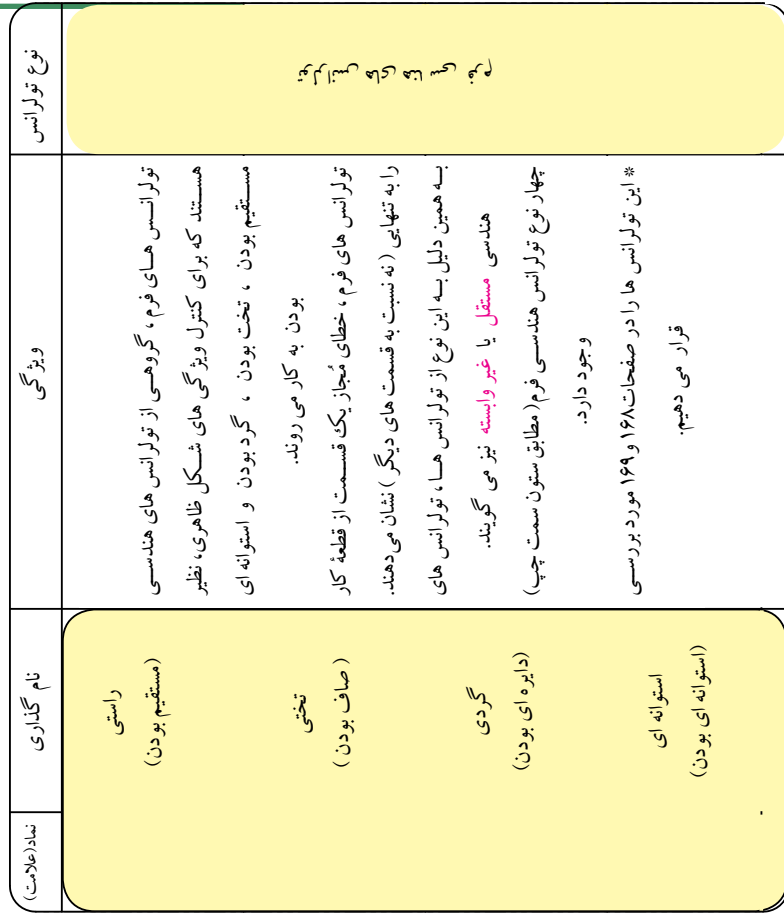 نوع تولرانس
ویژگی
نام گذاری
نماد(علامت)
تولرانس های هندسی فرم
تولرانــس هــای فرم ، گروهــی از تولرانس های هندســی
هستــند که برای کنترل ویژگی های شــکل ظاهری، نظیر
مســتقیم بودن ، تخت بودن ، گرد بودن و استوانه ای
بودن به کار می روند.
تولرانس های فرم ، خطای مُجاز یک قســمت از قطعهٔ کار
را به تنهایی ( نه نسبت به قسمت های دیگر ) نشان می دهند.
بــه همین دلیل بــه این نوع از تولرانس هــا ، تولرانس های
هندسی مستقل یا غیر وابسته نیز می گویند.
چهار نوع تولرانس هندســی فرم( مطابق ستون سمت چپ)
وجود دارد.
* این تولرانس ها را در صفحات۱۶۸ و ۱۶۹ مورد بررســی
قرار می دهیم.
راستی
(مستقیم بودن)
تختی
( صاف بودن )
گردی
(دایره ای بودن)
استوانه ای
(استوانه ای بودن)